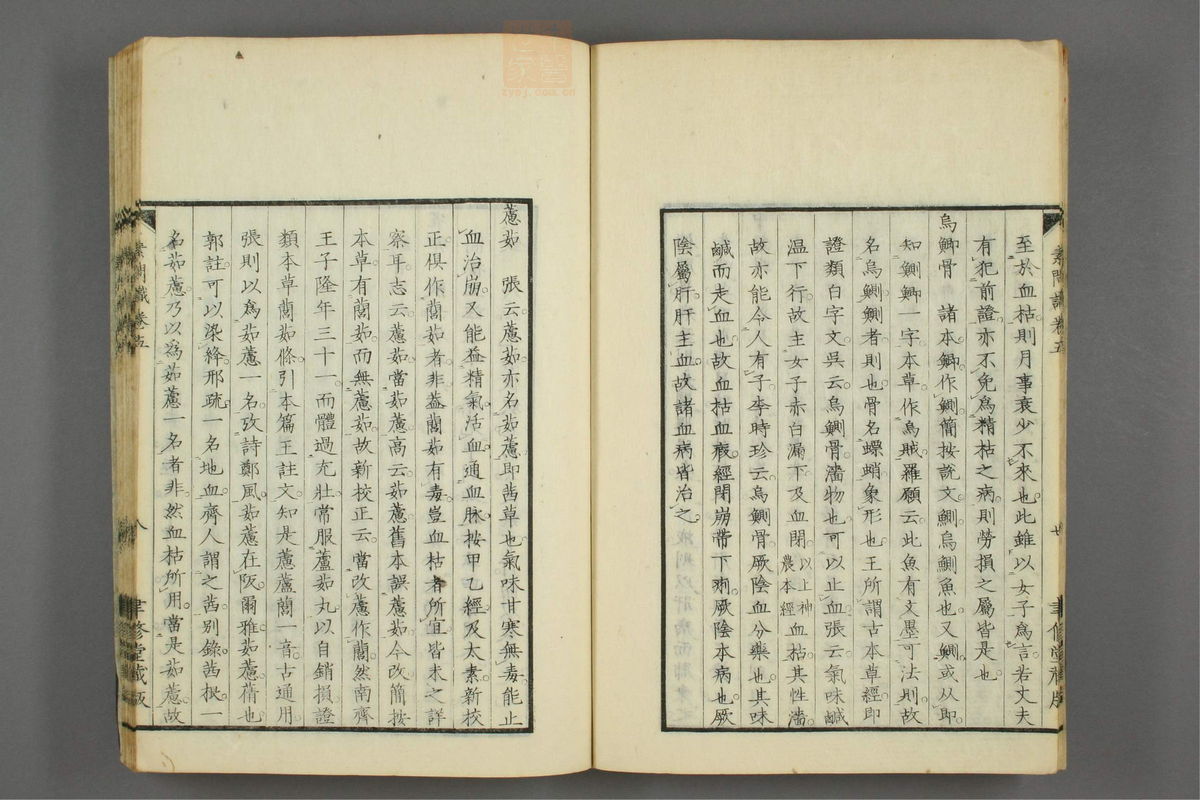 至於血枯則月事衰少不來也此雖以女子爲言若丈夫
有犯前證亦不免爲精枯之病則勞損之屬皆是也
烏鰂骨 諸本鰂作鰂簡按說文鰂烏鰂魚也又鰂或从卽
知鰂鯽一字本草作烏賊羅願云此魚有文墨可法則故
名烏鰂鰂者則也骨名螵蛸象形也王所謂古本草經卽
證類白字文吳云烏鰂骨濇物也可以止血張云氣味鹹
溫下行故主女子赤白漏下及血閉以上神農本經血枯其性濇
故亦能令人有子李時珍云烏鰂骨厥陰血分藥也其味
鹹而走血也故血枯血瘕經閉崩帶下痢厥陰本病也厥
陰屬肝肝主血故諸血病皆治之
素問識卷五
七
聿修堂藏版
藘茹 張云藘茹亦名茹藘卽茜草也氣味甘寒無毒能止
血治崩又能益精氣活血通血脉按甲乙經及太素新校
正俱作䕡茹者非蓋䕡茹有毒豈血枯者所宜皆未之詳
察耳志云藘茹當茹藘高云茹藘舊本誤藘茹今改簡按
本草有䕡茹而無藘茹故新校正云當改藘作䕡然南齊
王子隆年三十一而體過充壯常服蘆茹丸以自銷損證
類本草䕡茹條引本篇王註文知是藘蘆䕡一音古通用
張則以爲茹藘一名攷詩鄭風茹藘在阪爾雅茹藘蒨也
郭註可以染絳邢疏一名地血齊人謂之茜別錄茜根一
名茹藘乃以爲茹藘一名者非然血枯所用當是茹藘故
素問識卷五
八
聿修堂藏版
zyej.com.cn